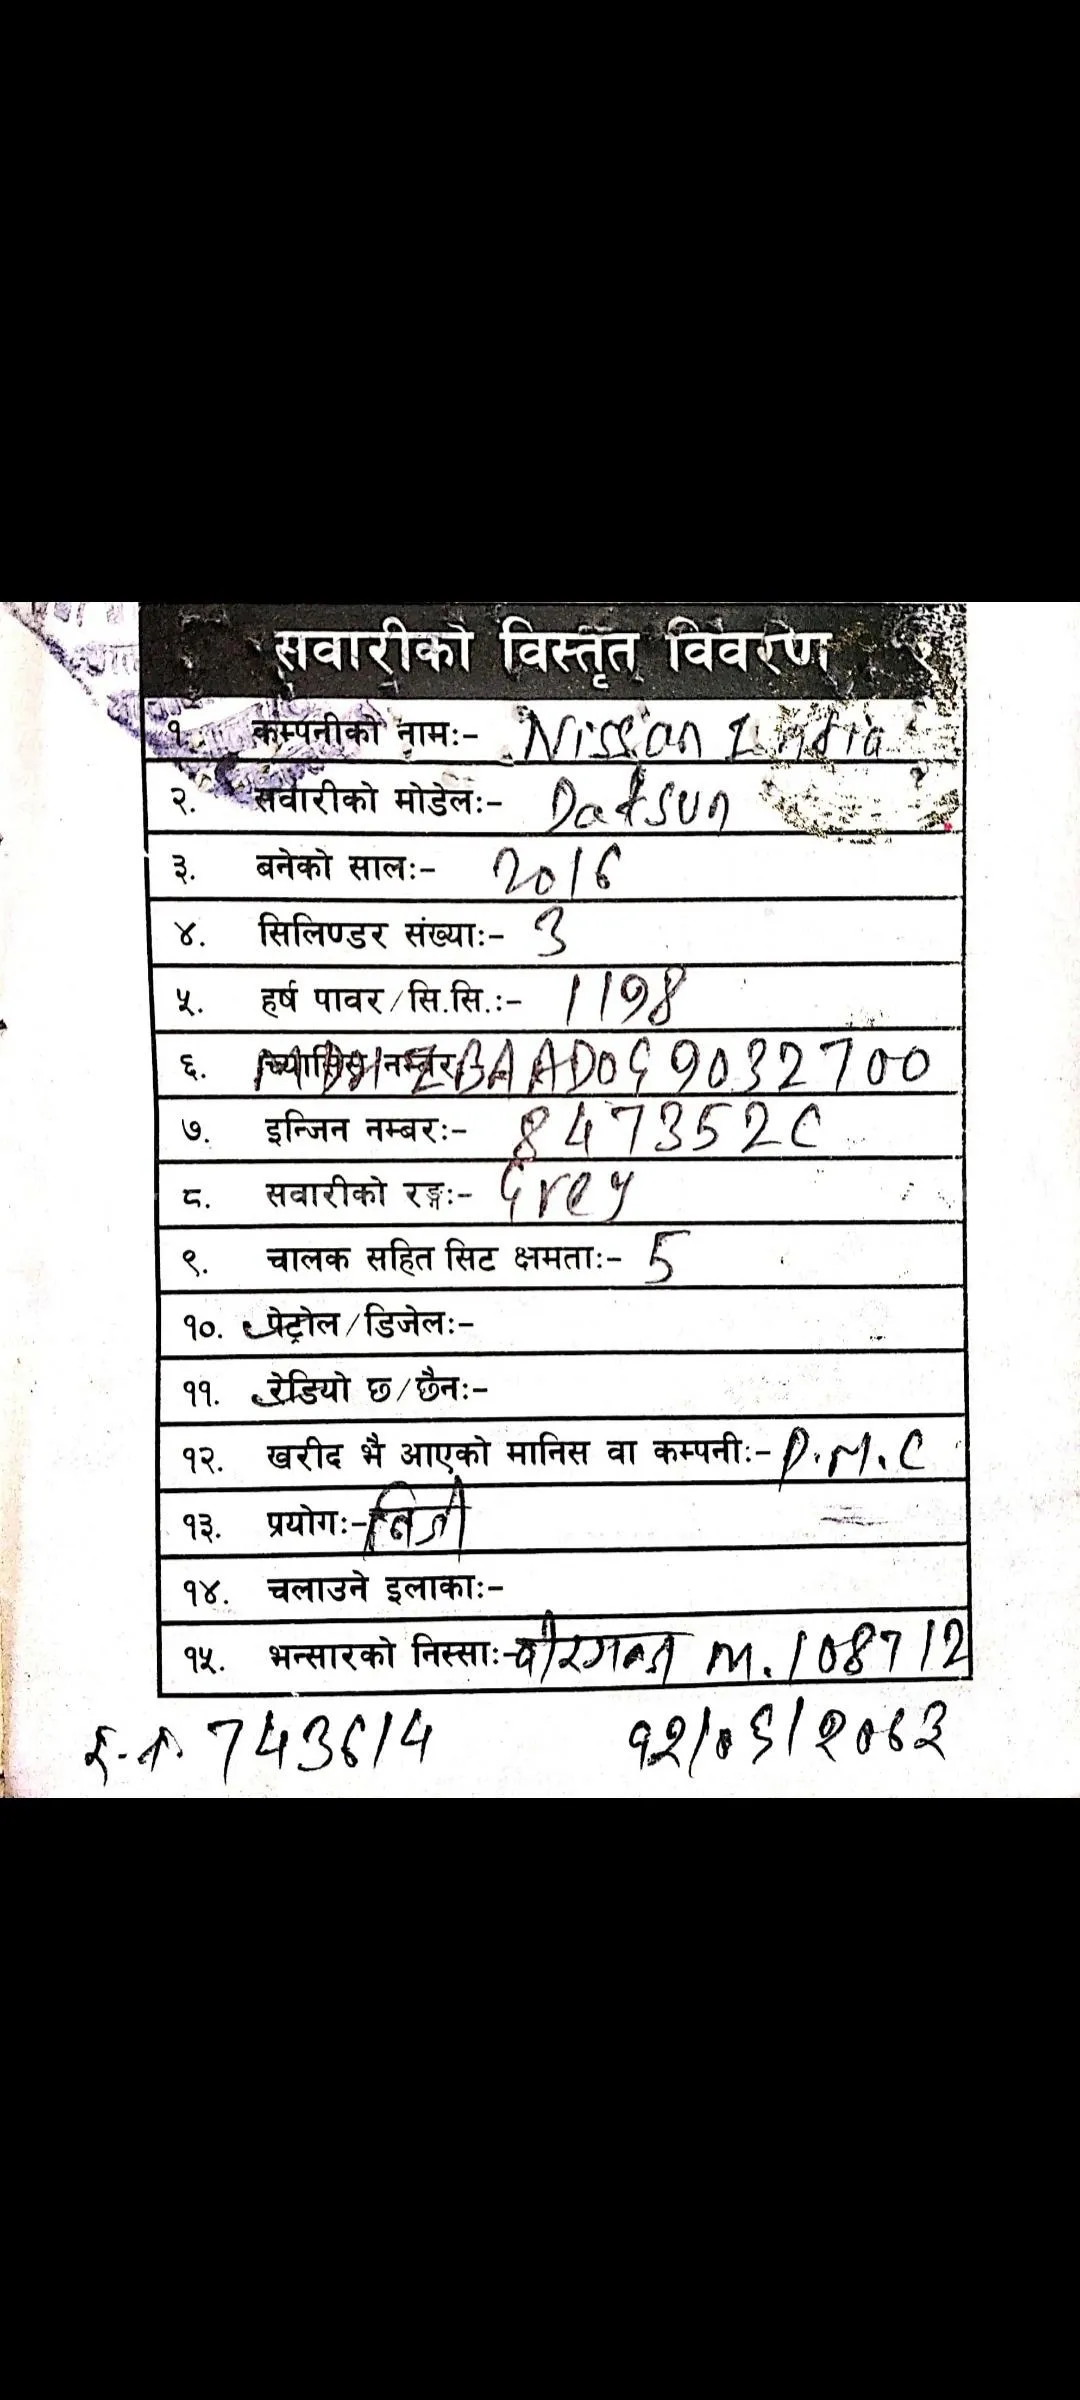 सवारीको विस्तृत विवरण
१. कम्पनीको नामः- Nissan India
२. सवारीको मोडेलः- Datsun
३. बनेको सालः- 2016
४. सिलिण्डर संख्याः- 3
५. हर्ष पावर/सि.सि.ः- 1198
६. च्यासिस नम्बर
७. इन्जिन नम्बरः- 847352C
८. सवारीको रङ्गः- Grey
९. चालक सहित सिट क्षमताः- 5
१०. पेट्रोल/डिजेलः-
११. रेडियो छ/छैनः-
१२. खरीद भै आएको मानिस वा कम्पनीः- P.M.C
१३. प्रयोगः- निजी
१४. चलाउने इलाकाः-
१५. भन्सारको निस्साः- वीरगन्ज M. 108712
743614